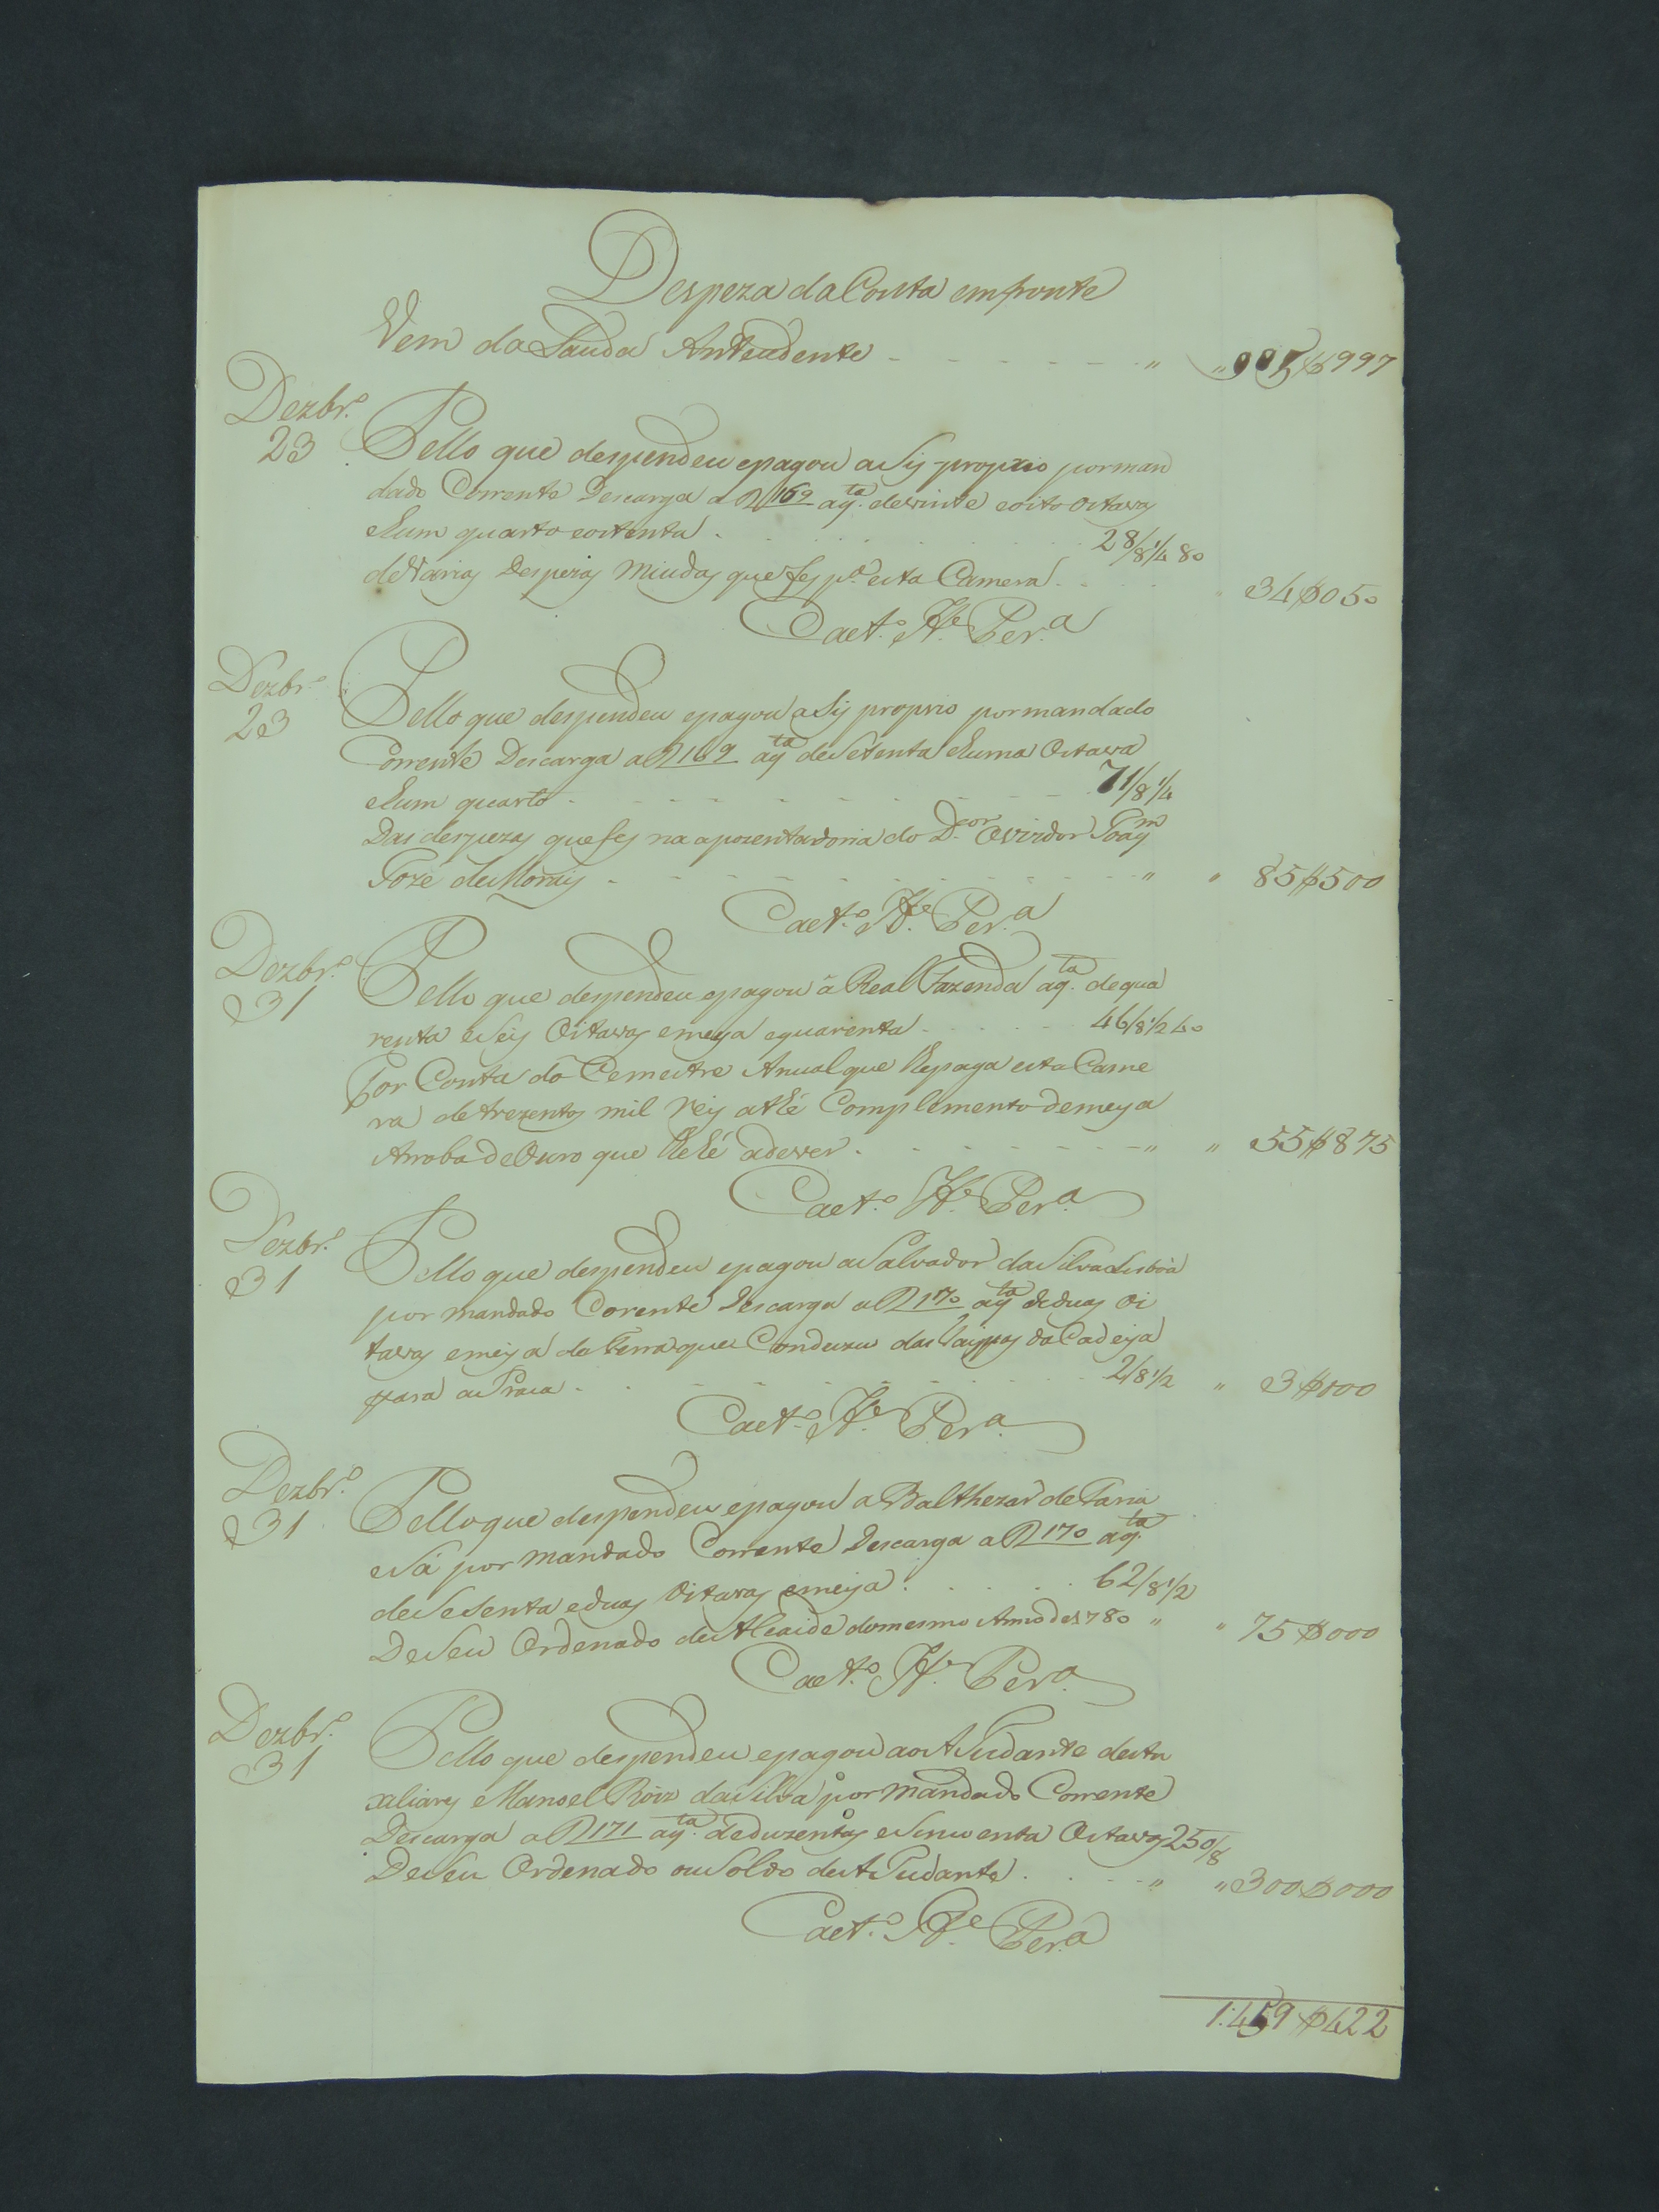 Despeza da Conta em fronte
Vem da Lauda Antecedente - - - - - - - " " 905$997
Dezbr.º
23 Pello que despendeu epagou asij proprio porman
dado Corrente Descarga a R 169 aq.ta devinte eoito oitavas
ehum quarto eoitenta . . . . . . . 28/8 1/4 80
deVarias Despezas Miudas que fes p.ª esta Camera . . . " 34$050
Caet.º He. Per.a
Dezbr.º
23 Pello que despendeu epagou asij proprio por mandado
Corrente Descarga a R 169 aq.ta desetenta ehuma Oitava
ehum quarto - - - - - - - - - 71/8 1/4
Das despezas que fes na apozentadoria do D.or Ovvidor Joaq.m
Joze de Morais - - - - - - - - " " 85$500
Caet.º He. Per.a
Dezbr.º
31 Pello que despendeu epagou á Real Fazenda aq.ta de qua
renta eseis Oitavas emeya equarenta . . . . 46/8 1/2 40
Por Conta do Cemestre Anual que lhe paga esta Came
ra de trezentos mil reis athé Complemento demeya
Arroba de Ouro que lhe hé adever . - - - - - " " 55$875
Caet.º He. Per.a
Dezbr.º
31 Pello que despendeu epagou a Salvador da Silva Lisboa
por mandado Corente Descarga a R 170 aq.ta deduas Oi
tavas emeya da terra que Conduziu das Taippas da Cadeya
para a Praia . - - - - - - - 2/8 1/2 " 3$000
Caet.º He. Per.a
Dezbr.º
31 Pello que despendeu epagou a Balthezar de Faria
eSá por mandado Corrente Descarga a R 170 aq.ta
desesenta eduas Oitavas emeya . . . . . 62/8 1/2
Deseu Ordenado de Alcaide domesmo Anno de 1780 " " 75$000
Caet.º He. Per.a
Dezbr.º
31 Pello que despendeu epagou ao AJudante deAu
xiliares Manoel Roiz da Silva por Mandado Corrente
Descarga a R 171 aq.ta deduzentas esincoenta Oitavas 250/8
Deseu Ordenado ou Soldo de AJudante . . . - " " 300$000
Caet.º He. Per.a
1:459$422